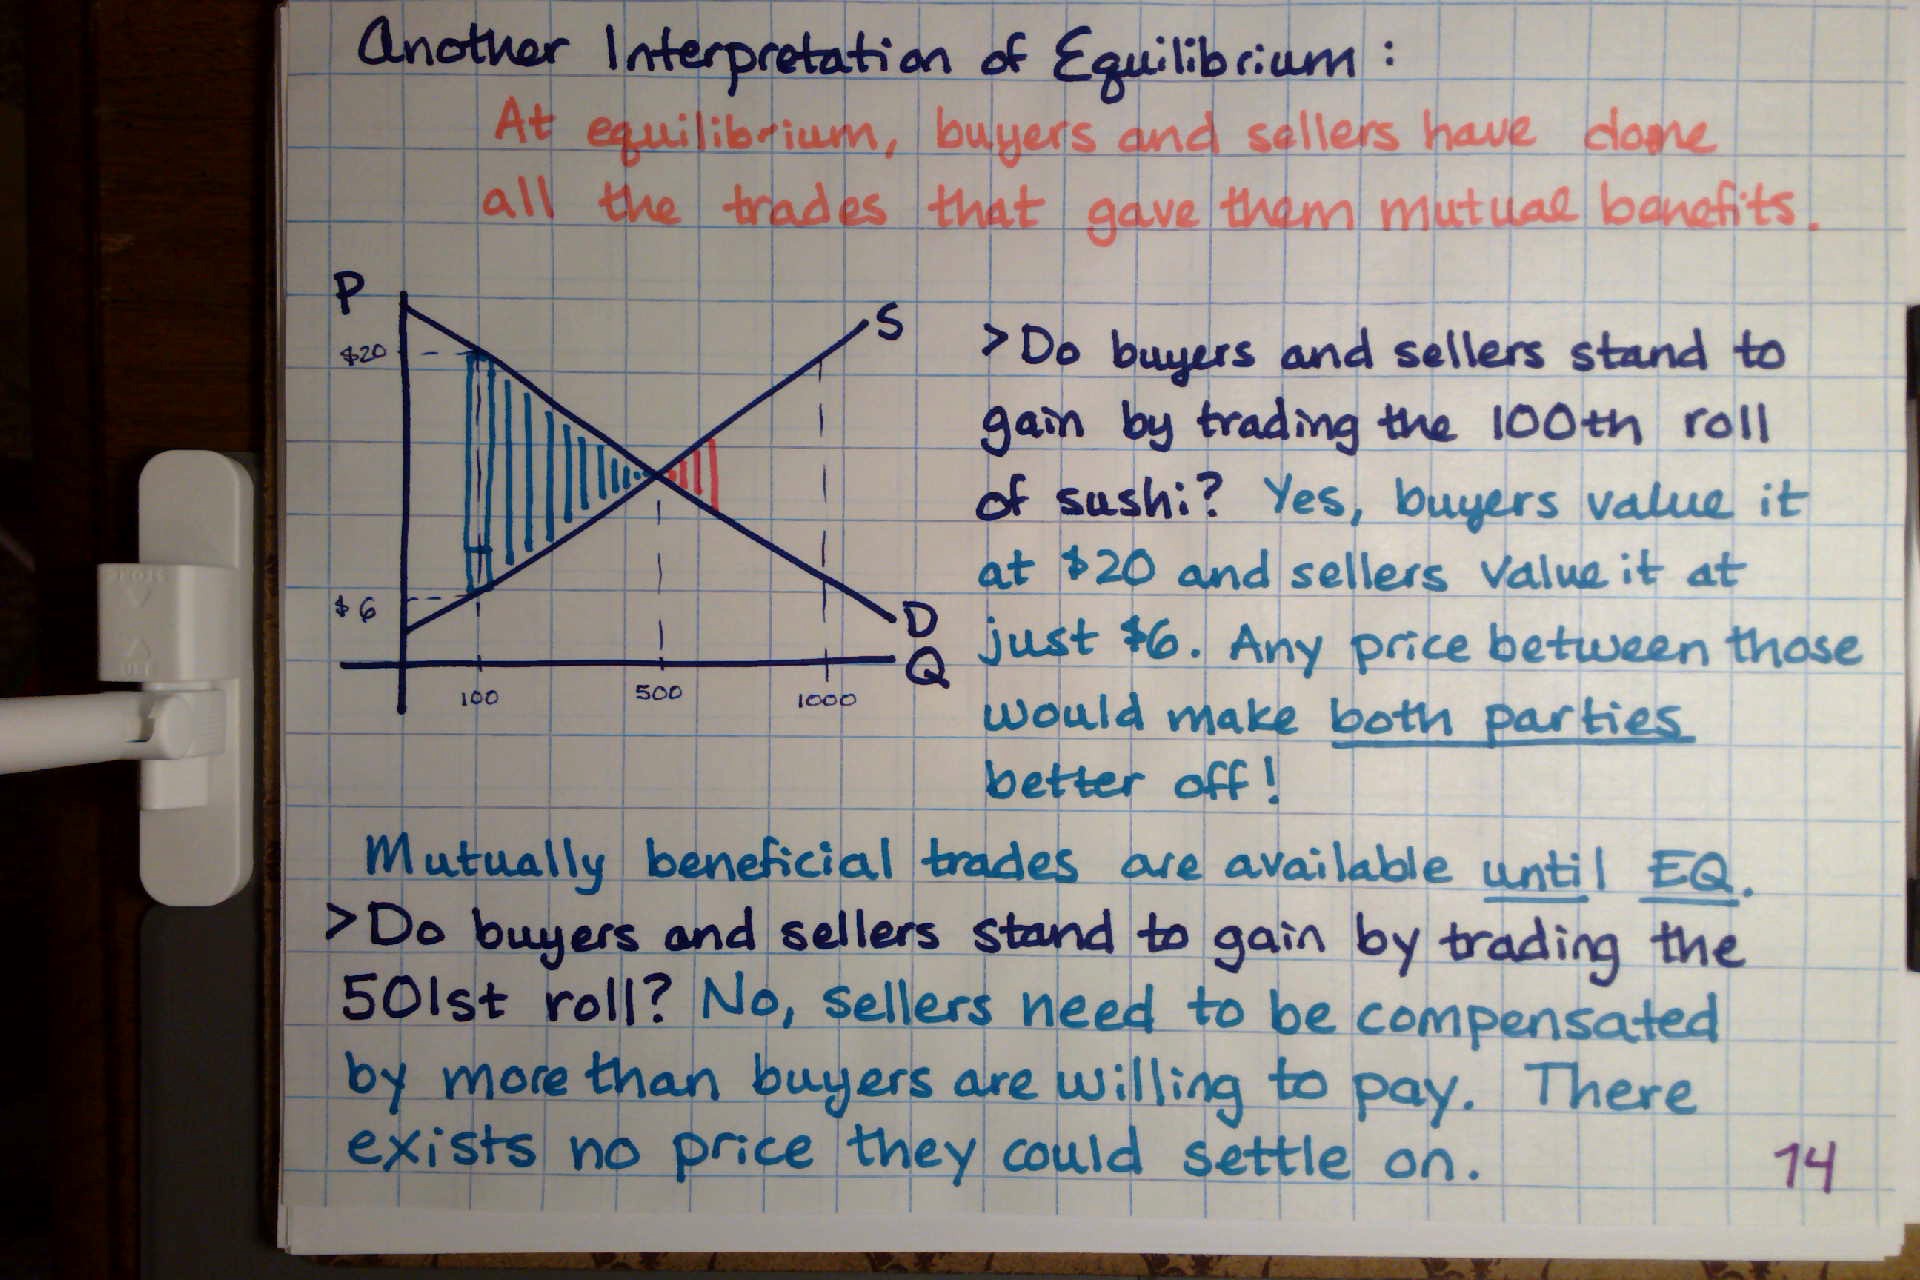 Another Interpretation of Equilibrium:
At equilibrium, buyers and sellers have done
all the trades that gave them mutual benefits.
P
$20
$6
S
D
Q
100
500
1000
>Do buyers and sellers stand to
gain by trading the 100th roll
of sushi? Yes, buyers value it
at $20 and sellers value it at
just $6. Any price between those
would make both parties
better off!
Mutually beneficial trades are available until EQ.
>Do buyers and sellers stand to gain by trading the
501st roll? No, sellers need to be compensated
by more than buyers are willing to pay. There
exists no price they could settle on.
14